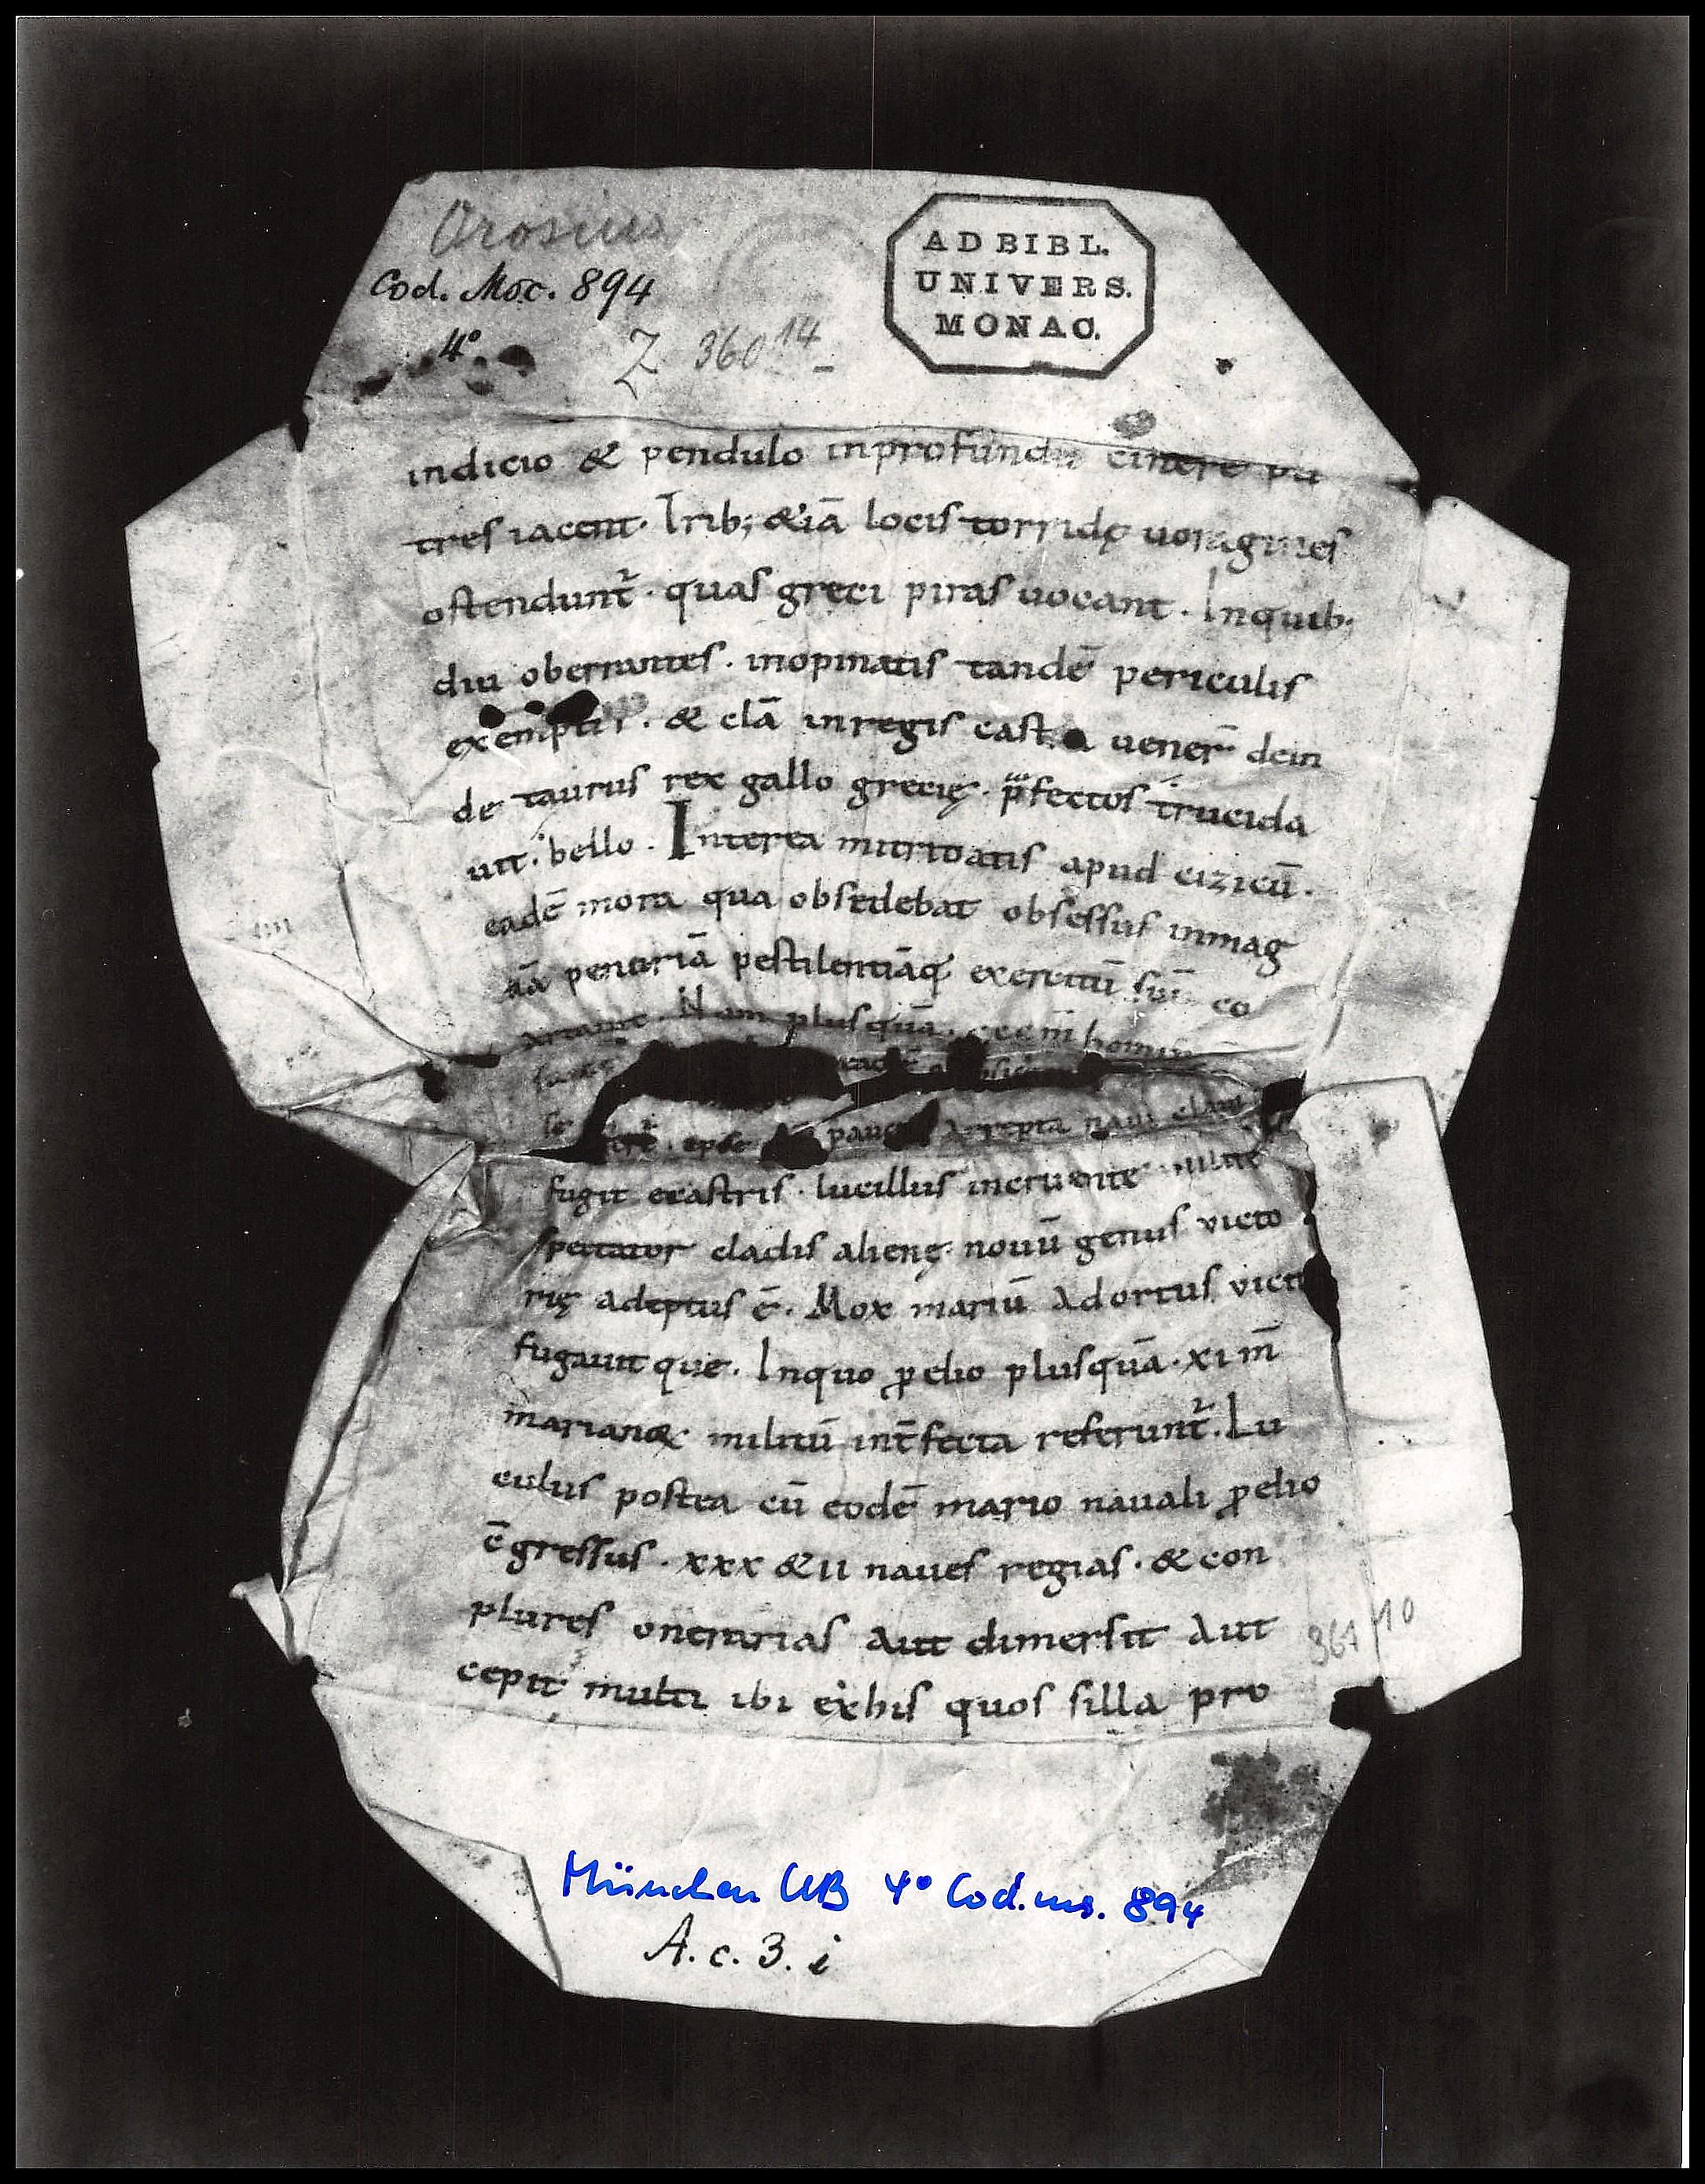 Orosius
Cod. Msc. 894
4°
Z 360 14
AD BIBL.
UNIVERS.
MONAC.
indicio & pendulo inprofundū cinere pu
tres iacent. Trib; &iā locis torridę uoragines
ostendunt̄. quas greci piras uocant. Inquib;
diu oberrantes. inopinatis tandē periculis
exempti. & clā inregis castra uener̄ dein
de taurus rex gallo grecię. p̄fectos trucida
uit. bello. Interea mitridatis apud cizicū.
eadē mora qua obsidebat obsessus inmag
nā penuriā pestilentiāq; exercitū suū co
artauit. Nam plusquā. ccc m̄ hominū
fame
se ipse pauc Arrepta naui clam
fugit excastris. lucillus incruente milite
spectator cladis alienę nouū genus victo
rię adeptus ē. Mox mariū adortus vicit
fugauitque. Inquo ꝓelio plusquā. xi m̄
marianoꝝ militū int̄fecta referunt̄. Lu
cullus postea cū eodē mario nauali ꝓelio
c̄gressus. xxx &ii naues regias. & con
plures onerarias aut dimersit aut
cepit multi ibi exhis quos silla pro
361 10
München UB 4° Cod. ms. 894
A. c. 3. i